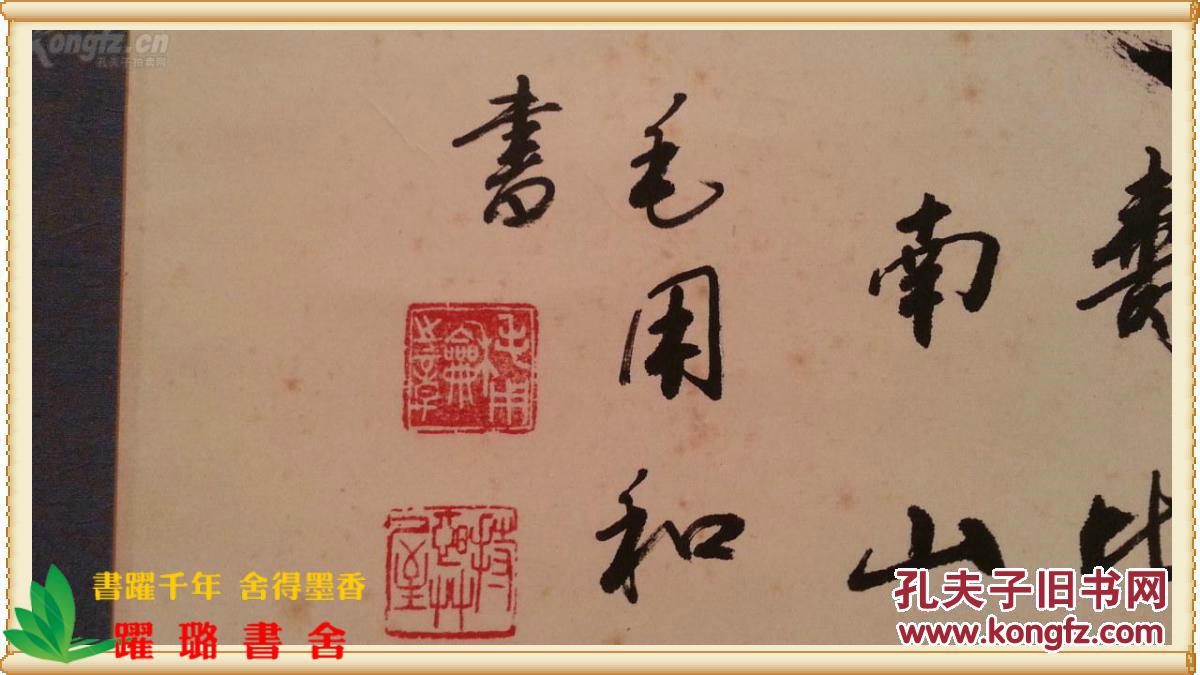 Kongfz.cn
孔夫子拍卖网
壽比
南山
毛用和
書
毛用龢之章
書躍千年 舍得墨香
躍璐書舍
孔夫子旧书网
www.kongfz.com